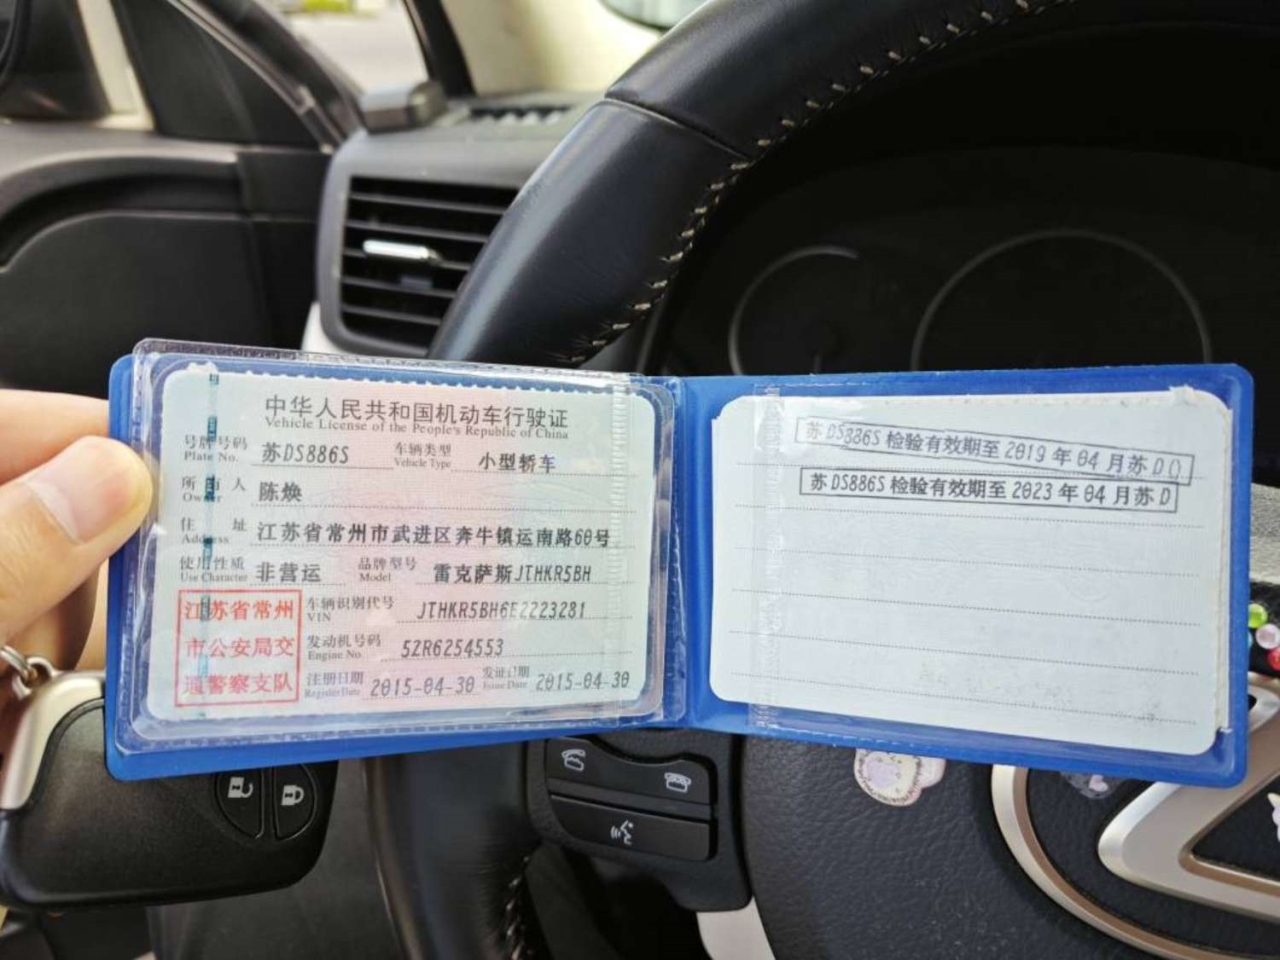 中华人民共和国机动车行驶证
Vehicle License of the People's Republic of China
号牌号码 苏DS886S 车辆类型 小型轿车
Plate No. Vehicle Type
所有人 陈焕
Owner
住址 江苏省常州市武进区奔牛镇运南路60号
Address
使用性质 非营运 品牌型号 雷克萨斯JTHKR5BH
Use Character Model
江苏省常州
市公安局交
通警察支队
车辆识别代号 JTHKR5BH6E2223281
VIN
发动机号码 5ZR6254553
Engine No.
注册日期 2015-04-30 发证日期 2015-04-30
Register Date Issue Date
苏DS886S检验有效期至2019年04月苏D
苏DS886S检验有效期至2023年04月苏D